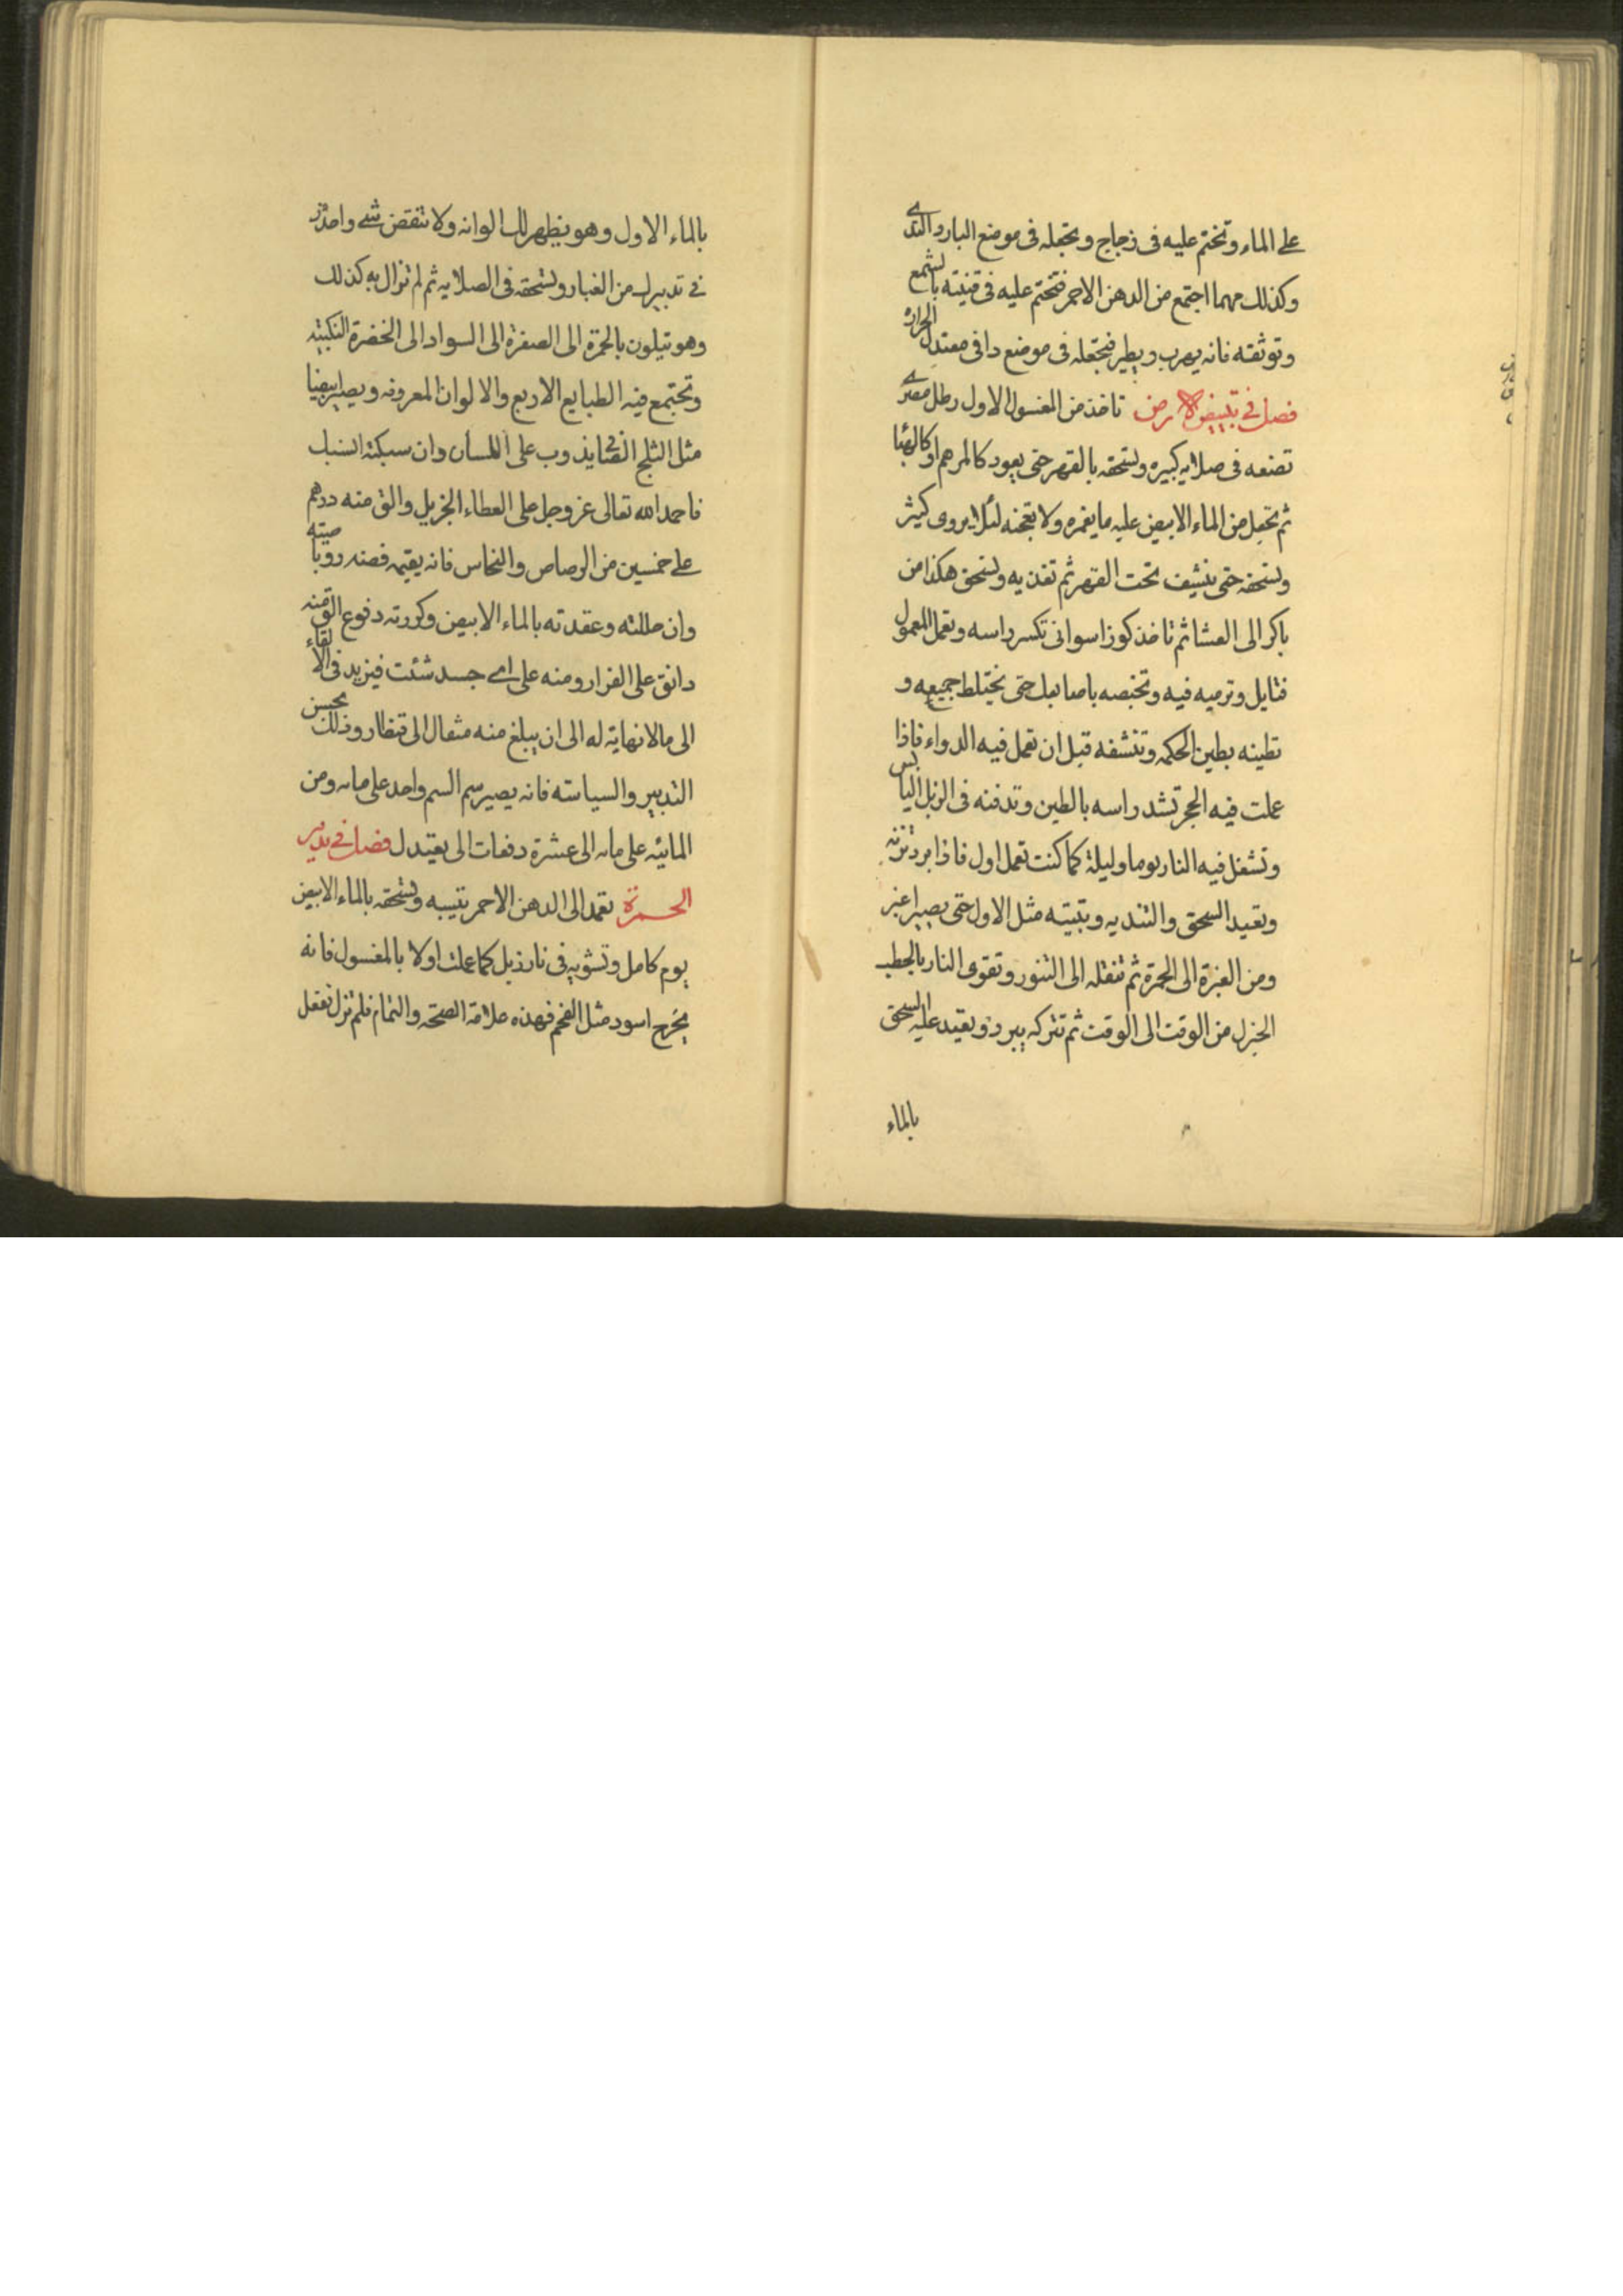 على الماء وتختم عليه فى زجاج وتجعله فى موضع البارد الندى
وكذلك مهما اجتمع من الدهن الاحمر فتختم عليه فى قنينه بالشمع
وتوثقه فانه يهرب ويطير فتجعله فى موضع دافى معتدل الحرارة
فصل فى تبييض الارض تاخذ من المغسول الاول رطل مصرى
تضعه فى صلايه كبيره وتسحقه بالقهر حتى يعود كالمرهم او كالهبا
ثم تجعل من الماء الابيض عليه ما يغمره ولا تعجنه لئلا يروى كثير
وتسحقه حتى ينشف تحت القهر ثم تغذيه وتسحق هكذا من
باكر الى العشا ثم تاخذ كوز اسوانى تكسر راسه وتعمل المعمول
فتايل وترميه فيه وتخبصه باصابعك حتى يختلط جميعه و
تطينه بطين الحكمه وتنشفه قبل ان تعمل فيه الدواء فاذا
عملت فيه الحجر تشد راسه بالطين وتدفنه فى الزبل اليابس
وتشغل فيه النار يوما وليلة كما كنت تعمل اول فاذا برد تزنه
وتعيد السحق والتنديه وتبيته مثل الاول حتى يصير اغبر
ومن الغبرة الى الحمرة ثم تنقله الى التنور وتقوى النار بالحطب
الجزل من الوقت الى الوقت ثم تتركه يبرد وتعيد عليه السحق
بالماء
بالماء الاول وهو يظهر لك الوانه ولا تنقص شى واحذر
فى تدبيرك من الغبار وتسحقه فى الصلايه ثم لم تزال به كذلك
وهو يتلون بالحمرة الى الصفرة الى السواد الى الخضرة
وتجتمع فيه الطبايع الاربع والالوان المعروفه ويصير ابيضا
مثل الثلج يذوب على اللسان وان سبكته انسبك
فاحمد الله تعالى عز وجل على العطاء الجزيل والق منه درهم
على خمسين من الرصاص والنحاس فانه يقيمه فضه روباصيه
وان حللته وعقدته بالماء الابيض وكررته دفوع الق منه
دانق على الفرار ومنه على اى جسد شئت فيزيد فى الالقاء
الى ما لانهاية له الى ان يبلغ منه مثقال الى قنطار وذلك بحسن
التدبير والسياسته فانه يصير سم السم واحد على مايه ومن
المائيه على مايه الى عشرة دفعات الى يعتدل فصل فى تدبير
الحمرة تعمد الى الدهن الاحمر وتسحقه بالماء الابيض
يوم كامل وتشويه فى نار زبل كما عملت اولا بالمغسول فانه
يخرج اسود مثل الفحم فهذه علامة الصحه والتمام فلم تزل تفعل